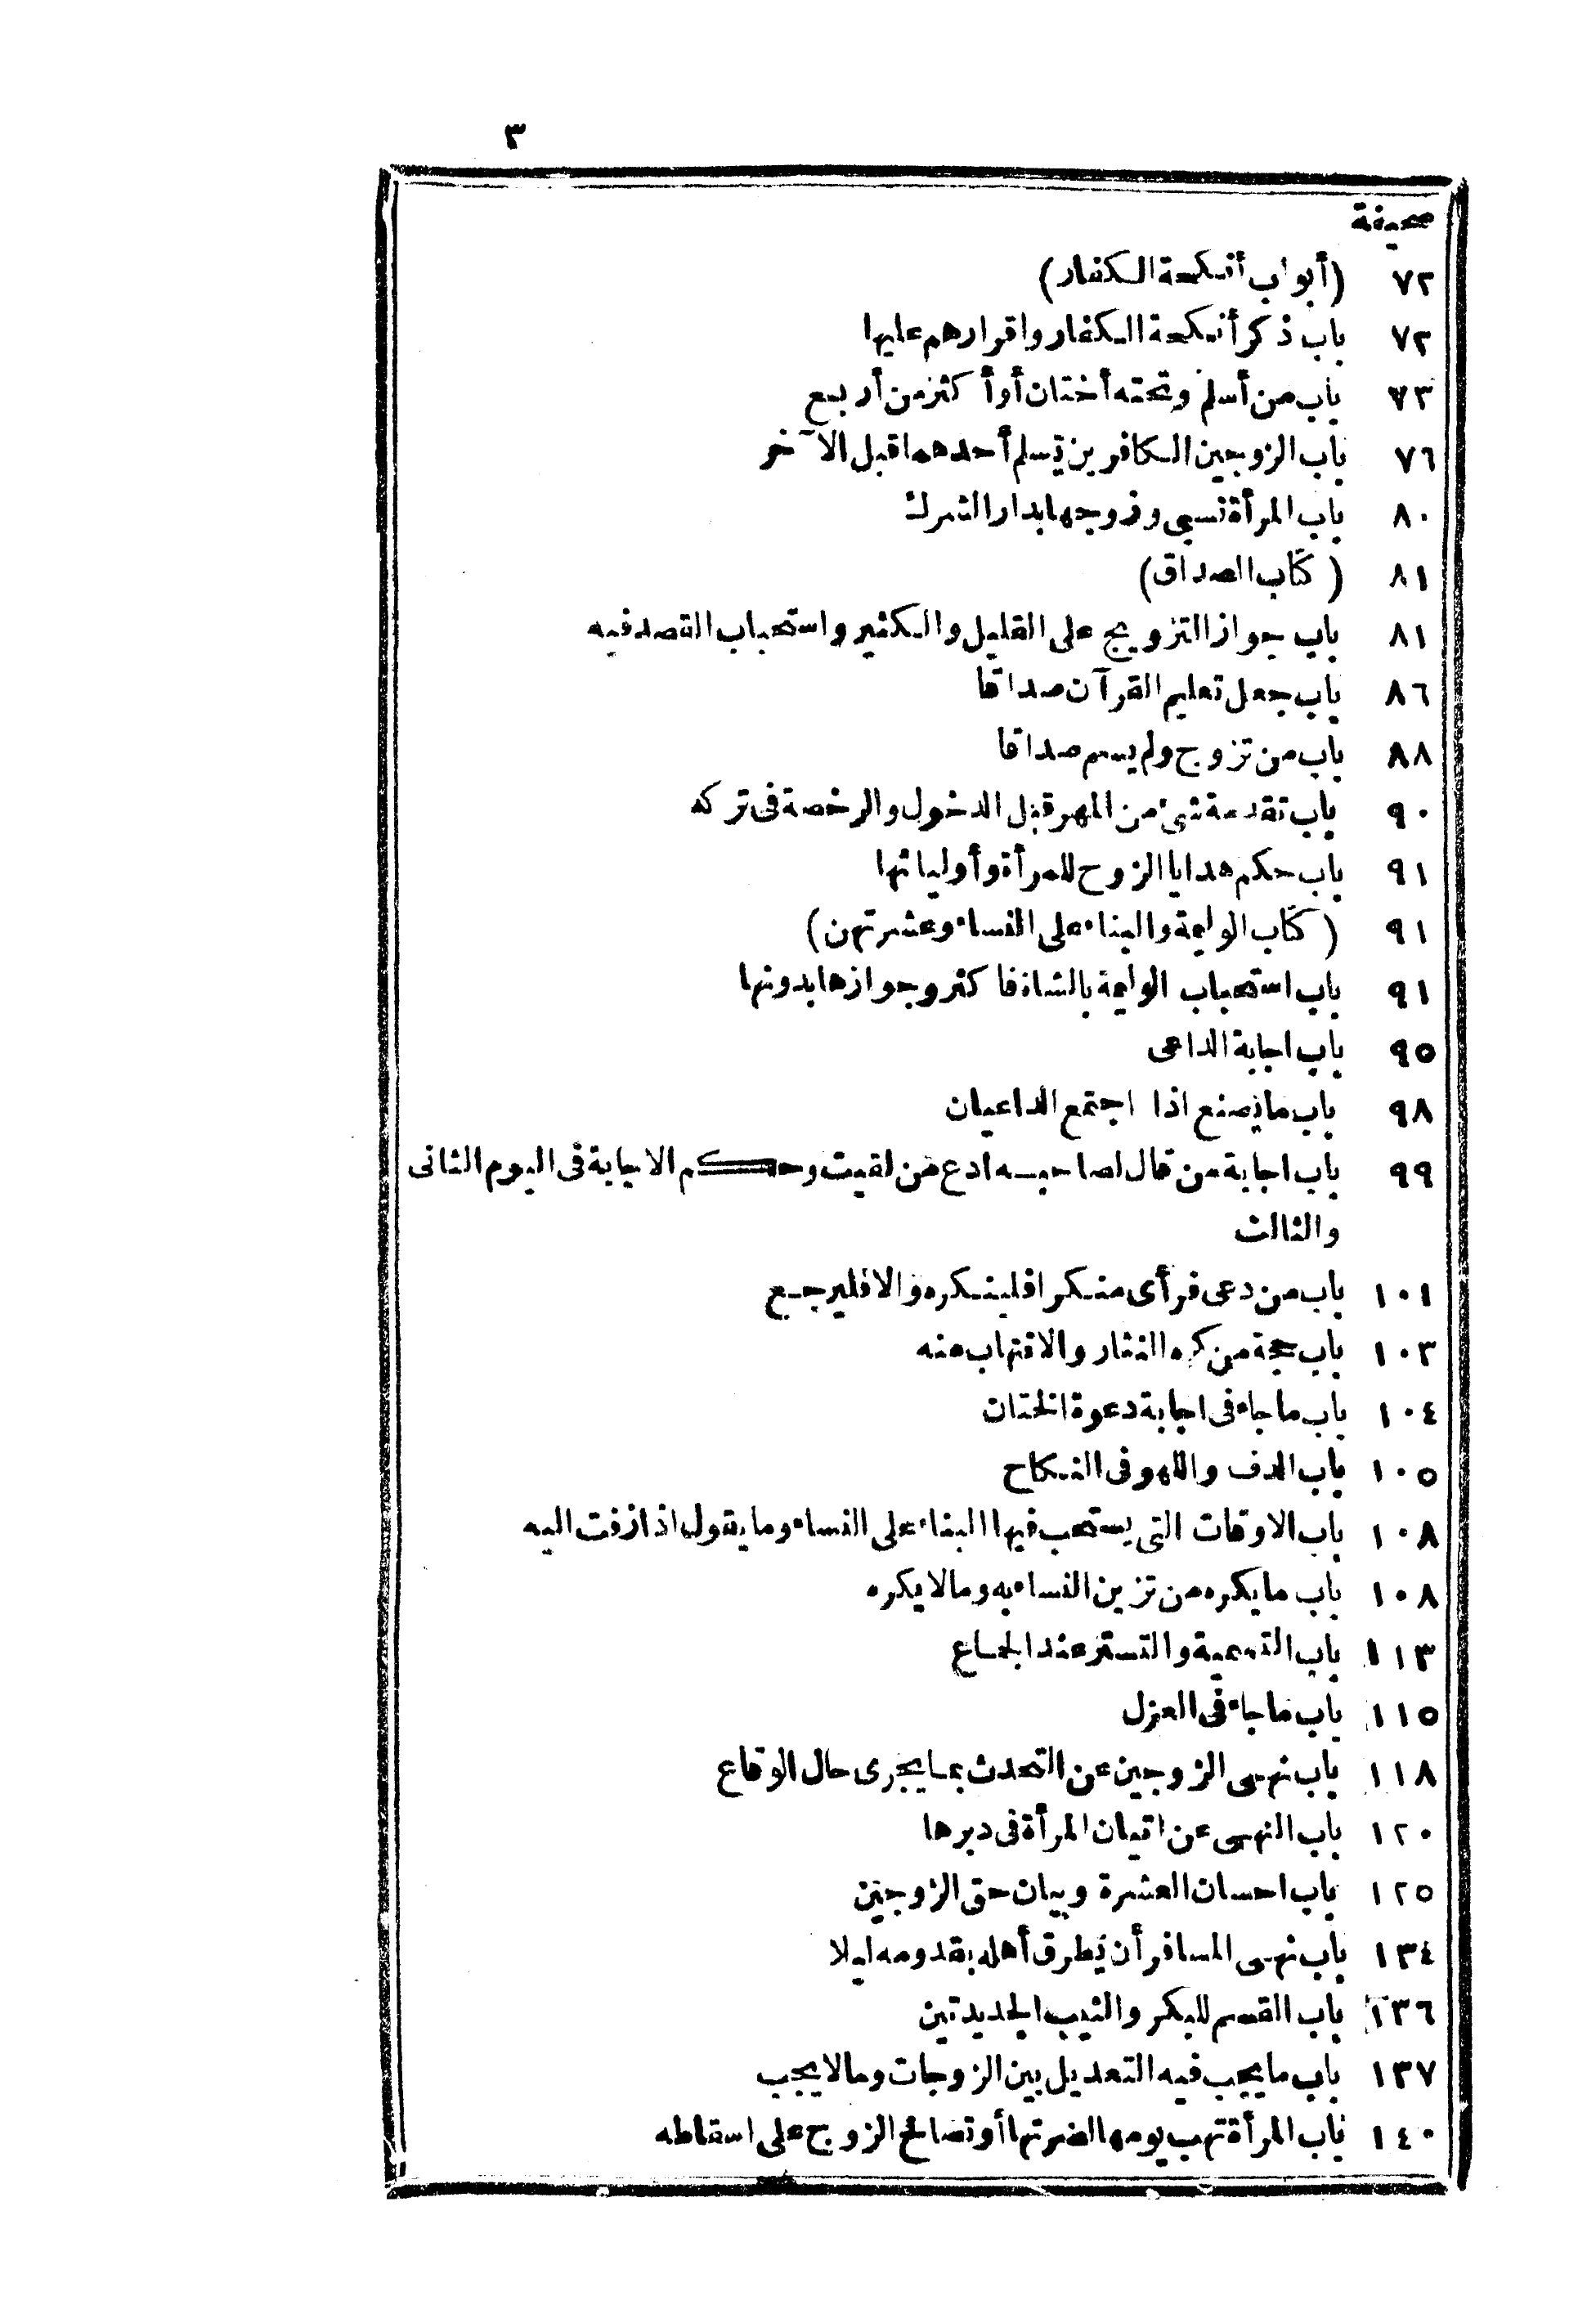 ٣
صحيفة
٧٢ (أبواب أنكحة الكفار)
٧٢ باب ذكر أنكحة الكفار واقرارهم عليها
٧٣ باب من أسلم وتحته أختان أو أكثر من أربع
٧٦ باب الزوجين الكافرين يسلم أحدهما قبل الآخر
٨٠ باب المرأة تسبى وزوجها بدار الشرك
٨١ (كتاب الصداق)
٨١ باب جواز التزويج على القليل والكثير واستحباب القصد فيه
٨٦ باب جعل تعليم القرآن صداقا
٨٨ باب من تزوج ولم يسم صداقا
٩٠ باب تقدمة شئ من المهر قبل الدخول والرخصة فى تركه
٩١ باب حكم هدايا الزوج للمرأة وأوليائها
٩١ (كتاب الوليمة والبناء على النساء وعشرتهن)
٩١ باب استحباب الوليمة بالشاة فاكثر وجوازها بدونها
٩٥ باب اجابة الداعى
٩٨ باب ما يصنع اذا اجتمع الداعيان
٩٩ باب اجابة من قال لصاحبه ادع من لقيت وحكم الاجابة فى اليوم الثانى
والثالث
١٠١ باب من دعى فرأى منكرا فلينكره والا فليرجع
١٠٣ باب حجة من كره النثار والانتهاب منه
١٠٤ باب ما جاء فى اجابة دعوة الختان
١٠٥ باب الدف واللهو فى النكاح
١٠٨ باب الاوقات التى يستحب فيها البناء على النساء وما يقول اذا زفت اليه
١٠٨ باب ما يكره من تزين النساء به وما لا يكره
١١٣ باب التسمية والتستر عند الجماع
١١٥ باب ما جاء فى العزل
١١٨ باب نهى الزوجين عن التحدث بما يجرى حال الوقاع
١٢٠ باب النهى عن اتيان المرأة فى دبرها
١٢٥ باب احسان العشرة وبيان حق الزوجين
١٣٤ باب نهى المسافر أن يطرق أهله بقدومه ليلا
١٣٦ باب القسم للبكر والثيب الجديدتين
١٣٧ باب ما يجب فيه التعديل بين الزوجات وما لا يجب
١٤٠ باب المرأة تهب يومها لضرتها أو تصالح الزوج على اسقاطه